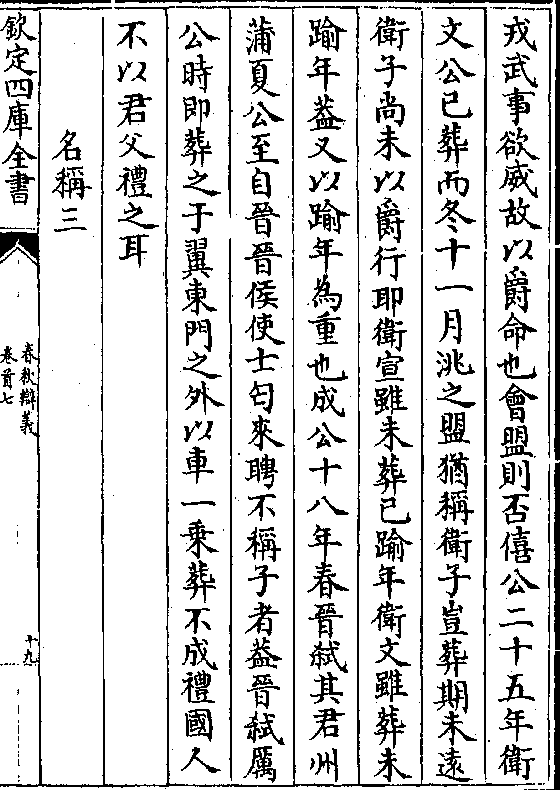 戎武事欲威故以爵命也會盟則否僖公二十五年衛
文公已葬而冬十一月洮之盟猶稱衛子豈葬期未遠
衛子尚未以爵行耶衛宣雖未葬已踰年衛文雖葬未
踰年葢又以踰年為重也成公十八年春晉弑其君州
蒲夏公至自晉晉侯使士匄來聘不稱子者葢晉弑厲
公時即葬之于翼東門之外以車一乘葬不成禮國人
不以君父禮之耳
名稱三
欽定四庫全書
春秋辯義
卷首七
十九